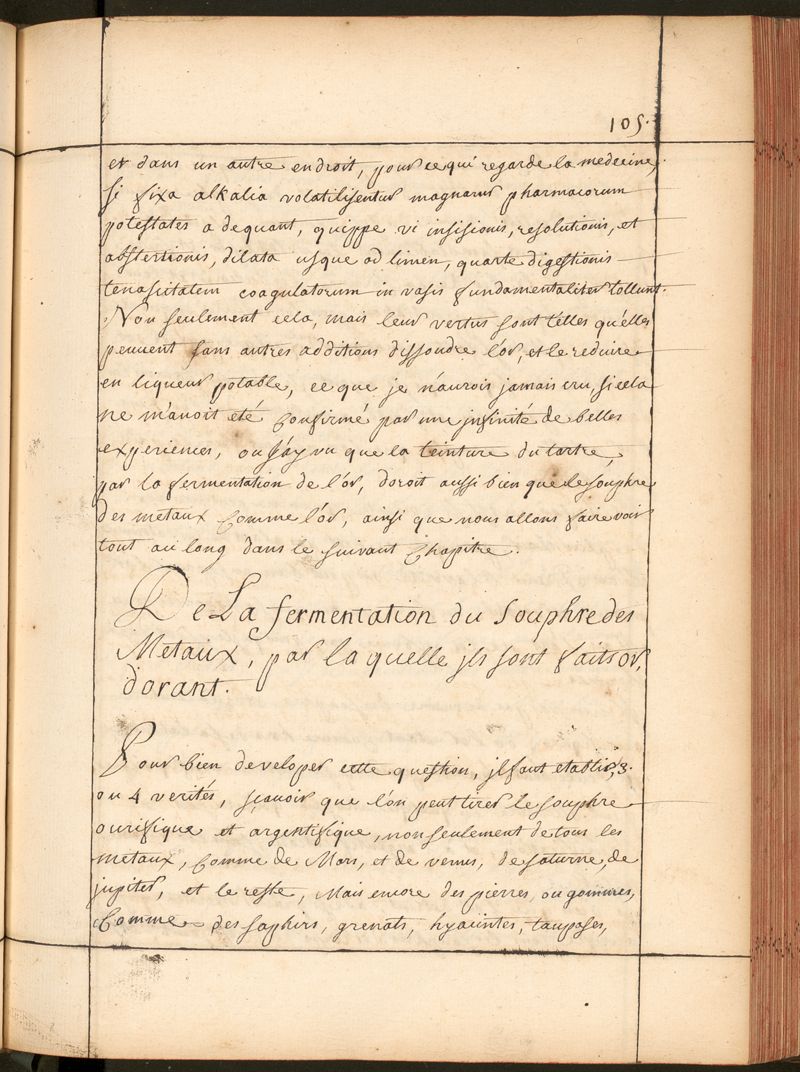 105.
et dans un autre endroit, pour ce qui regarde la medecine,
si fixa alkalia volatilisentur magnarum pharmacorum
potestates adequant, quippe vi insisionis, resolutionis, et
abstertionis, dilata usque ad limen, quarte digestionis
tenascitatem coagulatorum in vasis fundamentaliter tollunt.
Non seulement cela, mais leur vertus sont telles qu'elles
peuuent sans autres additions dissoudre l'or, et le reduire
en liqueur potable, ce que je n'aurois jamais cru, si cela
ne m'auoit eté Confirmé par une jnfinité de belles
experiences, ou j'ay vu que la teinture du tartre,
par la fermentation de l'or, doroit aussi bien que le souphre
des metaux Comme l'or, ainsi que nous allons faire voir
tout au long dans le suivant Chapitre.
De La fermentation du souphre des
Metaux, par la quelle jls sont faits or,
dorant.
Pour bien developer cette question, jl faut etablir, 3.
ou 4 verités, sçauoir que l'on peut tirer le souphre
aurifique et argentifique, non seulement de tous les
metaux, Comme de Mars, et de venus, de saturne, de
jupiter, et le reste, Mais encore des pierres, ou gommes,
Comme des saphirs, grenats, hyacintes, taupases,